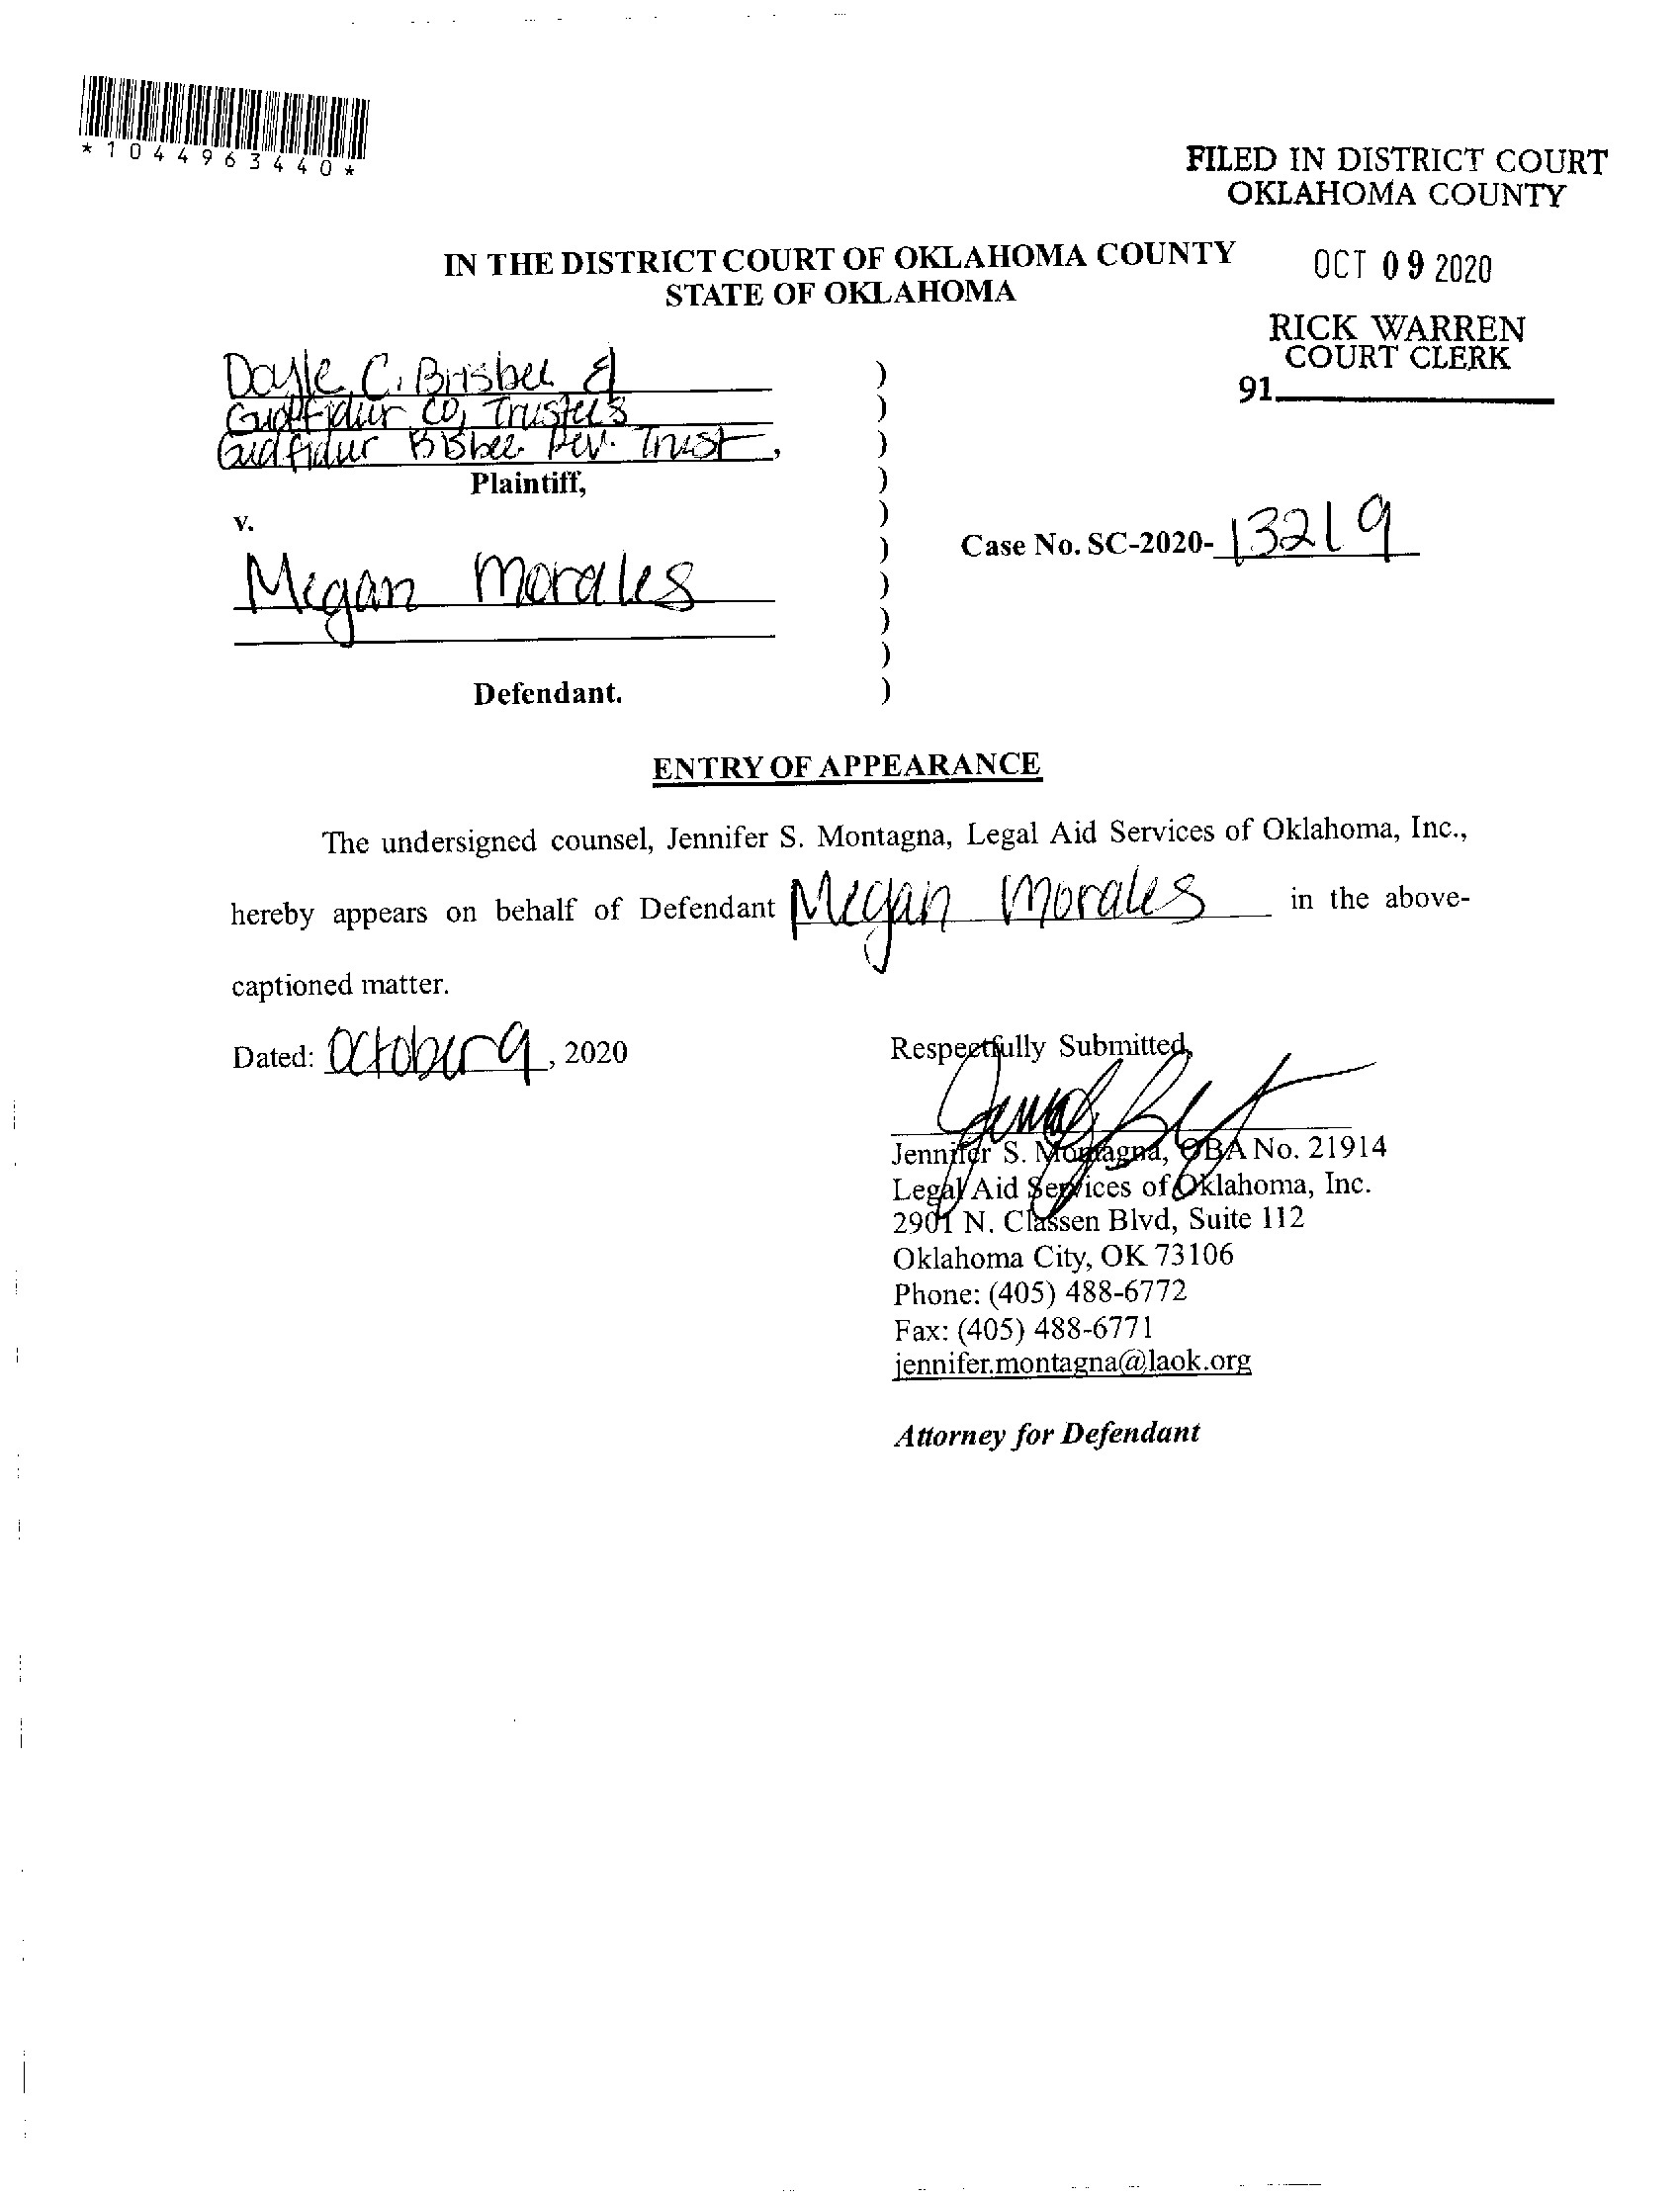 *1044963440*
FILED IN DISTRICT COURT
OKLAHOMA COUNTY
IN THE DISTRICT COURT OF OKLAHOMA COUNTY
STATE OF OKLAHOMA
OCT 09 2020
RICK WARREN
COURT CLERK
91
Doyle C. Brisbee &
Co, Trustees
Bisbee Rev. Trust,
Plaintiff,
v.
Megan Morales
Defendant.
)
)
)
)
)
)
)
)
)
)
Case No. SC-2020- 13219
ENTRY OF APPEARANCE
The undersigned counsel, Jennifer S. Montagna, Legal Aid Services of Oklahoma, Inc.,
hereby appears on behalf of Defendant Megan Morales in the above-
captioned matter.
Dated: October 9, 2020
Respectfully Submitted,
Jennifer S. Montagna, OBA No. 21914
Legal Aid Services of Oklahoma, Inc.
2901 N. Classen Blvd, Suite 112
Oklahoma City, OK 73106
Phone: (405) 488-6772
Fax: (405) 488-6771
jennifer.montagna@laok.org
Attorney for Defendant